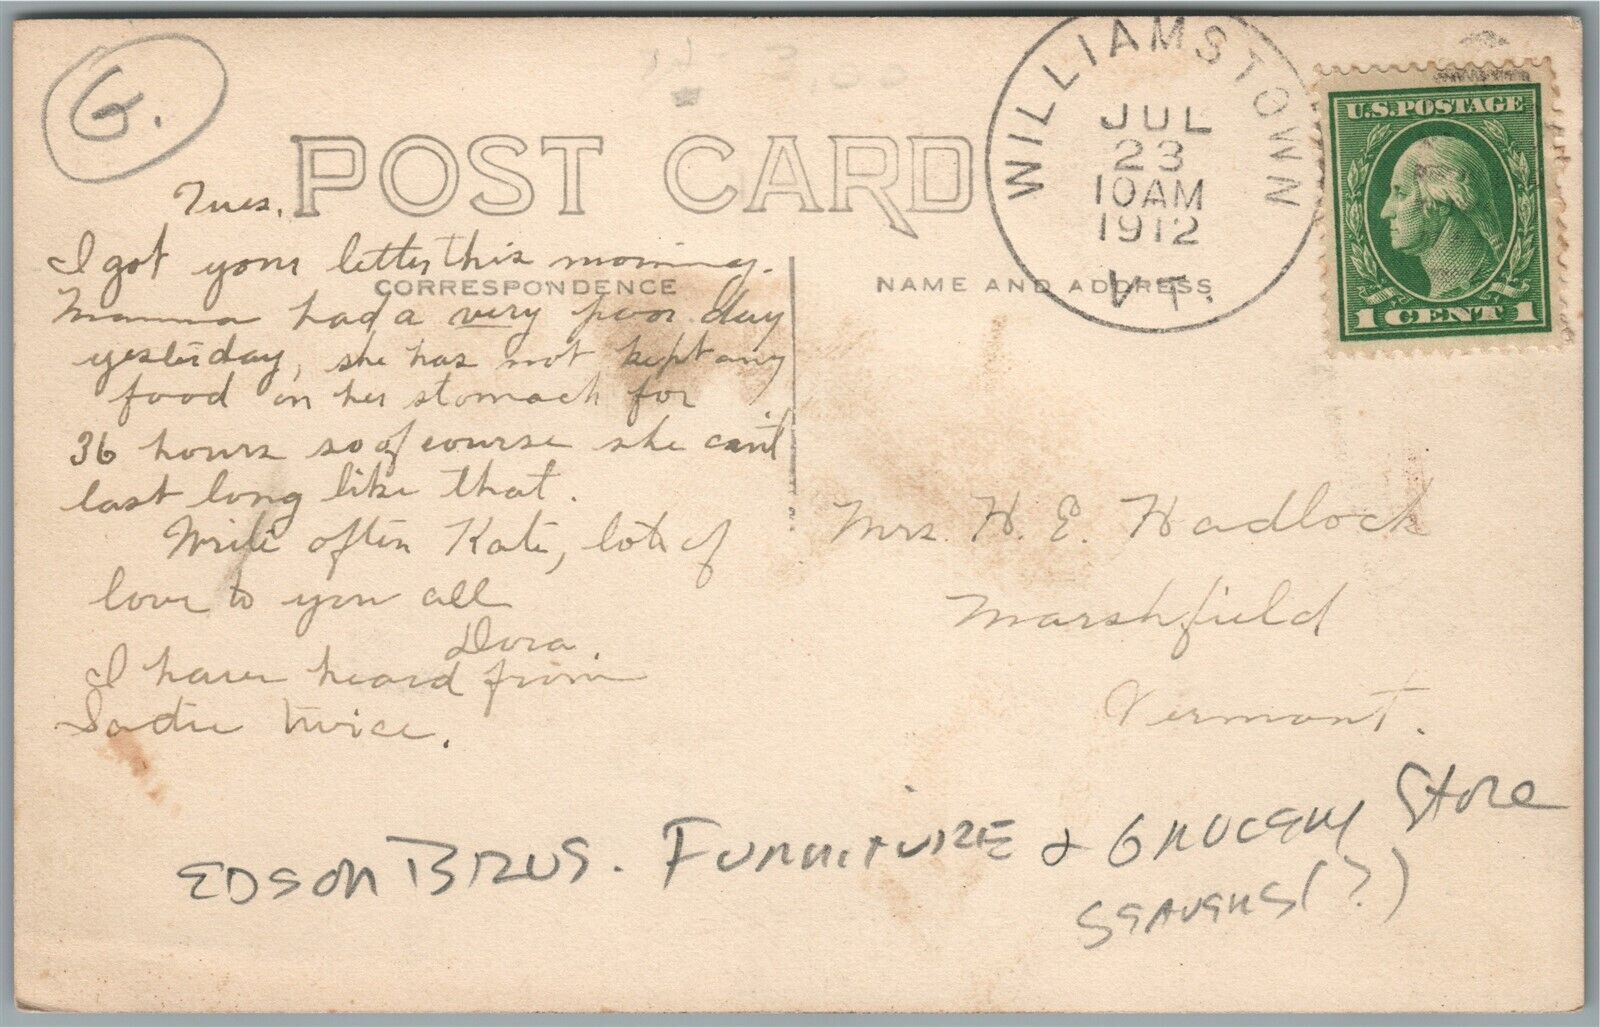 G.
POST CARD
WILLIAMSTOWN
JUL
23
10AM
1912
VT.
U.S. POSTAGE
1 CENT 1
CORRESPONDENCE
NAME AND ADDRESS
Tues.
I got your letter this morning.
Mamma had a very poor day
yesterday, she has not kept any
food on her stomach for
36 hours so of course she can't
last long like that.
Write often Kate, lots of
love to you all
Dora.
I have heard from
Sadie twice.
Mrs. H. E. Hadlock
Marshfield
Vermont.
EDSON BROS. FURNITURE & GROCERY Store
(?)